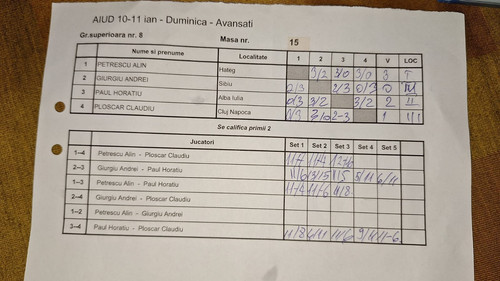 AIUD 10-11 ian - Duminica - Avansati
Gr.superioara nr. 8 Masa nr. 15
Nume si prenume Localitate 1 2 3 4 V LOC
1 PETRESCU ALIN Hateg 3/2 3/0 3/0 3 I
2 GIURGIU ANDREI Sibiu 2/3 2/3 0/3 0
3 PAUL HORATIU Alba Iulia 0/3 3/2 3/2 2 II
4 PLOSCAR CLAUDIU Cluj Napoca 0/3 3/0 2-3 1 III
Se califica primii 2
Jucatori Set 1 Set 2 Set 3 Set 4 Set 5
1--4 Petrescu Alin - Ploscar Claudiu 11/7 11/4
2--3 Giurgiu Andrei - Paul Horatiu 11/6 13/15 11/5 5/11 6/11
1--3 Petrescu Alin - Paul Horatiu 11/4 11/6 11/8
2--4 Giurgiu Andrei - Ploscar Claudiu
1--2 Petrescu Alin - Giurgiu Andrei
3--4 Paul Horatiu - Ploscar Claudiu 11/8 11/6 9/11 11-6